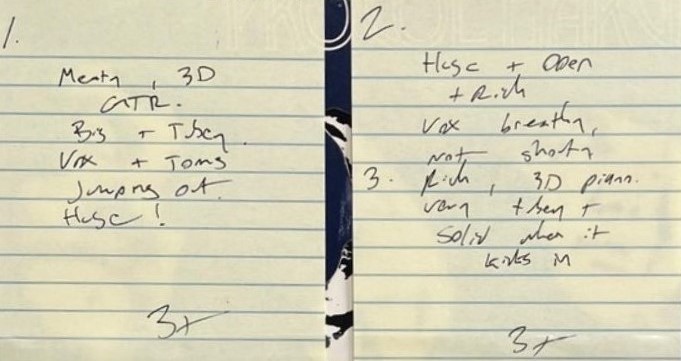 1.
Meaty, 3D
GTR.
Big + Tubey.
Vox + Toms
Jumping out.
Huge!
3+
2.
Huge + Open
+ Rich
Vox breathy,
not shouty
3. Rich, 3D piano.
very tubey +
Solid when it
kicks in
3+